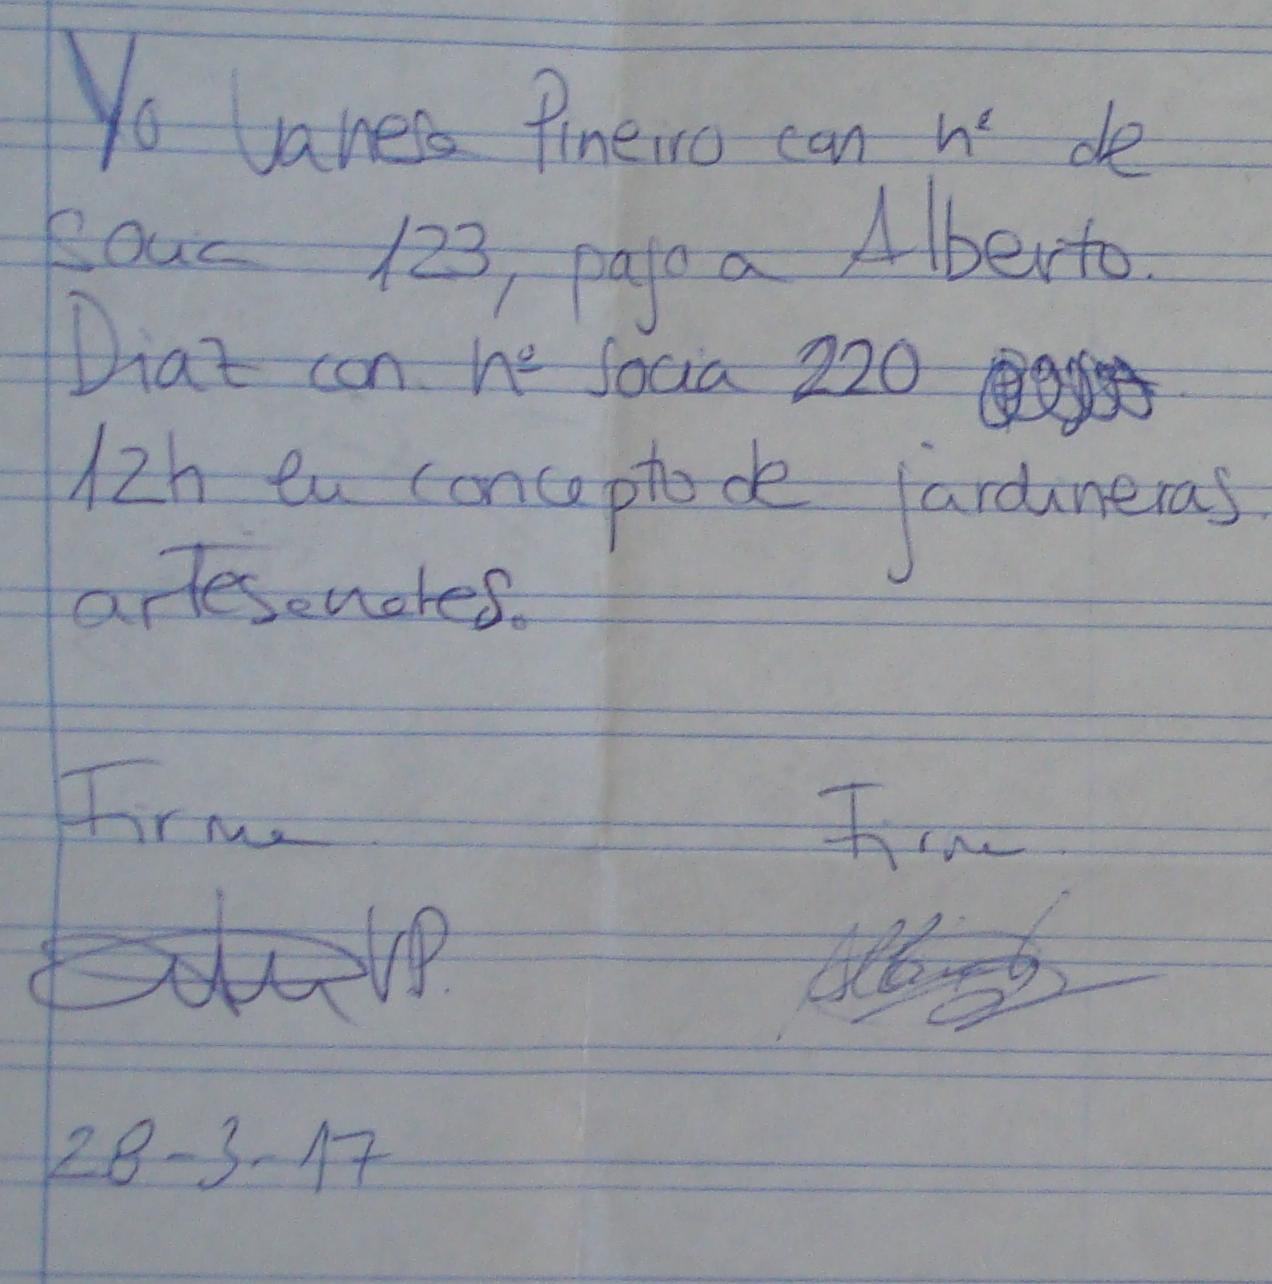 Yo Vanesa Pineiro con nº de
socia 123, pago a Alberto.
Diaz con nº socia 220
12h en concepto de jardineras
artesanales.
Firma Firma
VP.
28-3-17